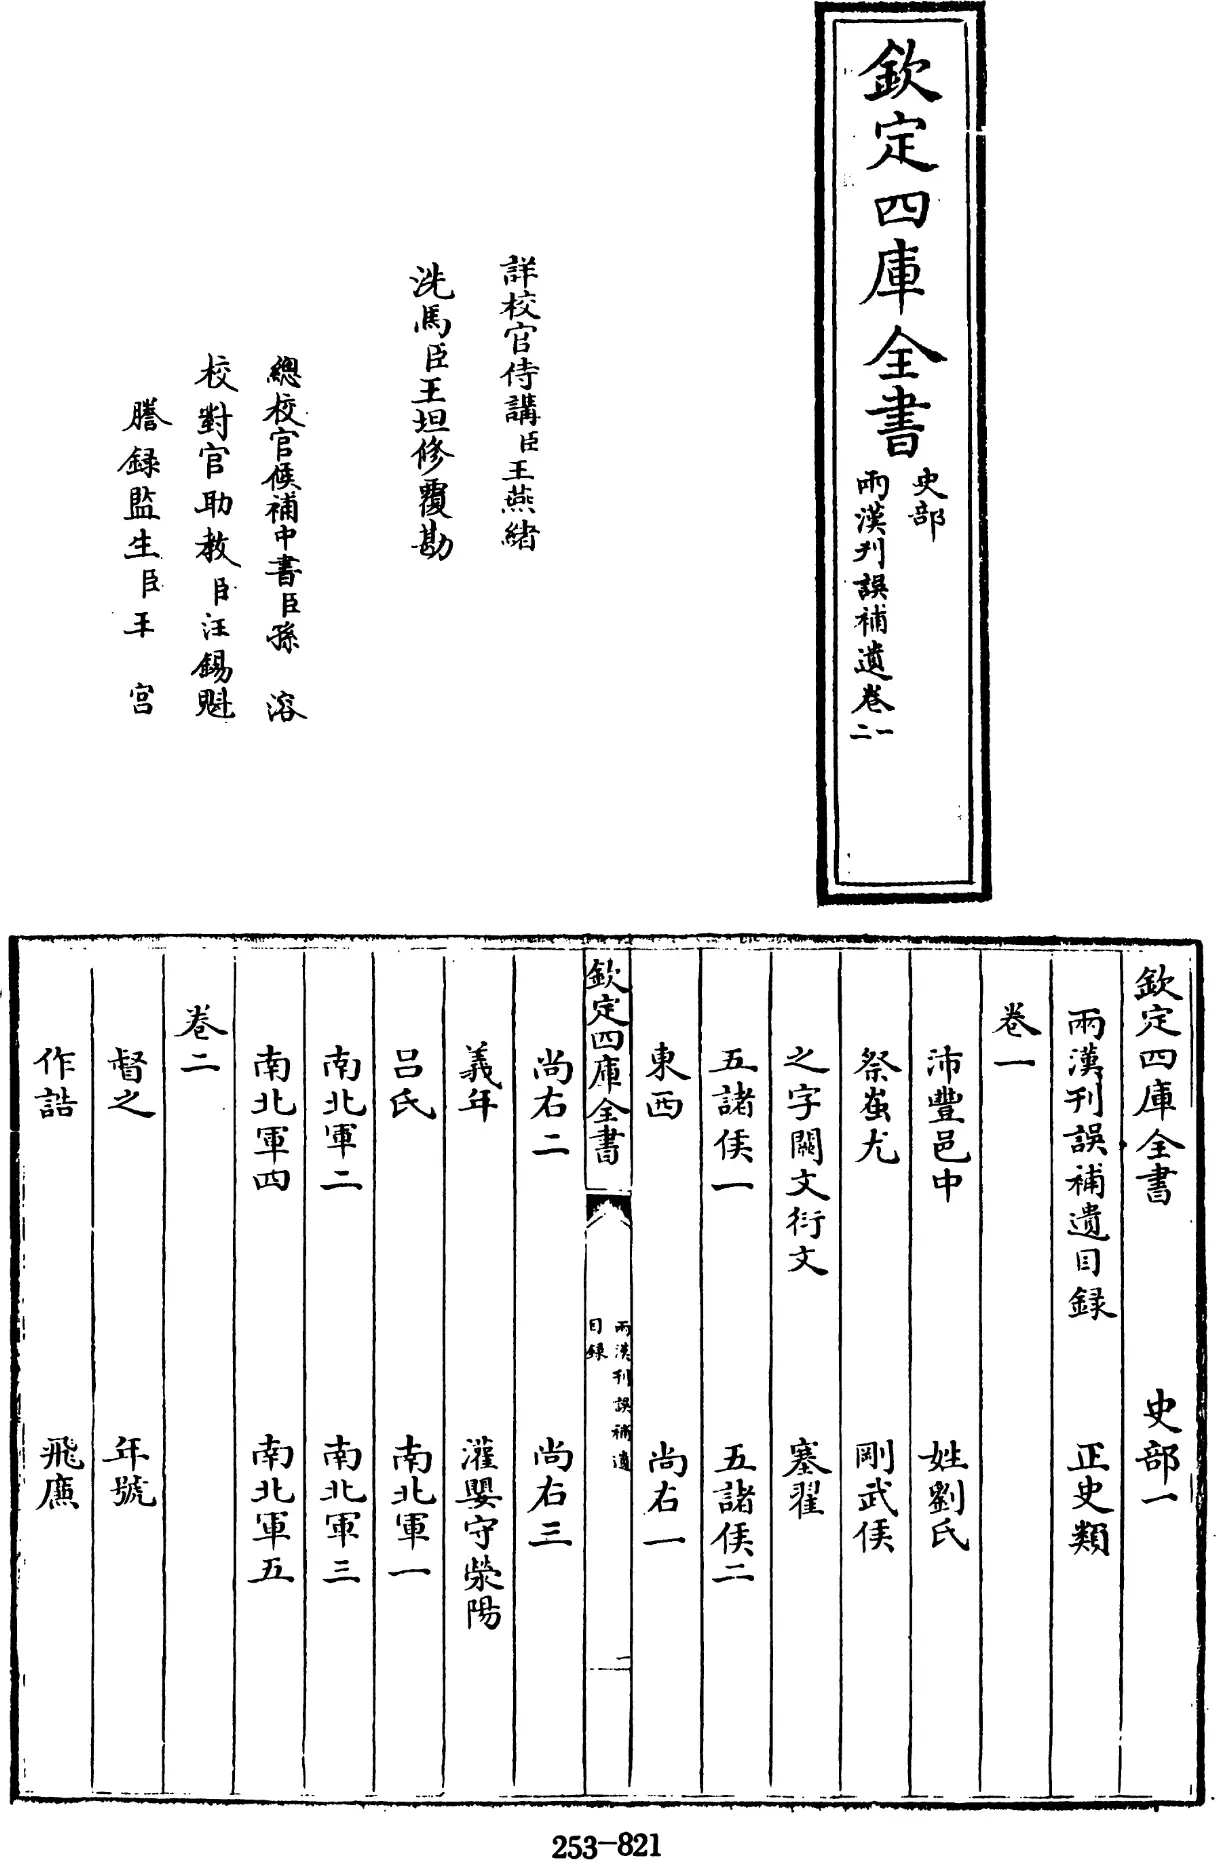 欽定四庫全書
史部
兩漢刋誤補遺卷一
二
詳校官侍講臣王燕緒
洗馬臣王坦修覆勘
總校官候補中書臣孫溶
校對官助教臣汪錫魁
謄録監生臣王宫
欽定四庫全書 史部一
兩漢刋誤補遺目録 正史類
卷一
沛豐邑中 姓劉氏
祭蚩尤 剛武侯
之字闕文衍文 塞翟
五諸侯一 五諸侯二
東西 尚右一
欽定四庫全書
兩漢刋誤補遺
目録
二
尚右二 尚右三
義年 灌嬰守滎陽
吕氏 南北軍一
南北軍二 南北軍三
南北軍四 南北軍五
卷二
督之 年號
作誥 飛廉
253-821